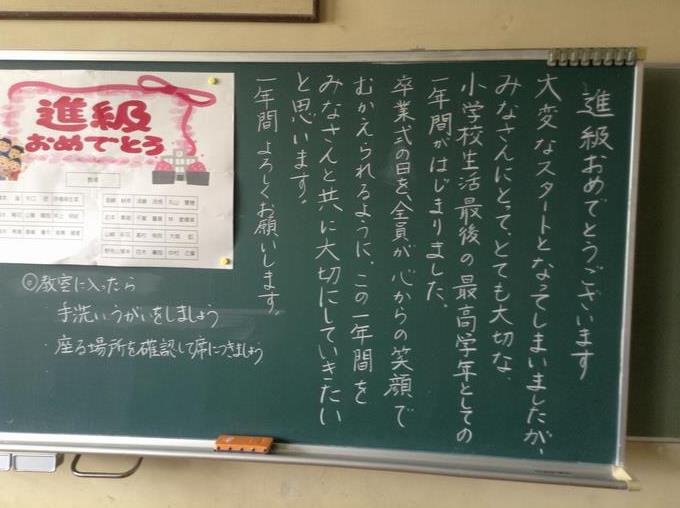 進級おめでとうございます
大変なスタートとなってしまいましたが、
みなさんにとって、とても大切な、
小学校生活最後の最高学年としての
一年間がはじまりました。
卒業式の日を、全員が心からの笑顔で
むかえられるように、この一年間を
みなさんと共に大切にしていきたい
と思います。
一年間よろしくお願いします。
進級
おめでとう
◎教室に入ったら
手洗いうがいをしましょう
・座る場所を確認して席につきましょう